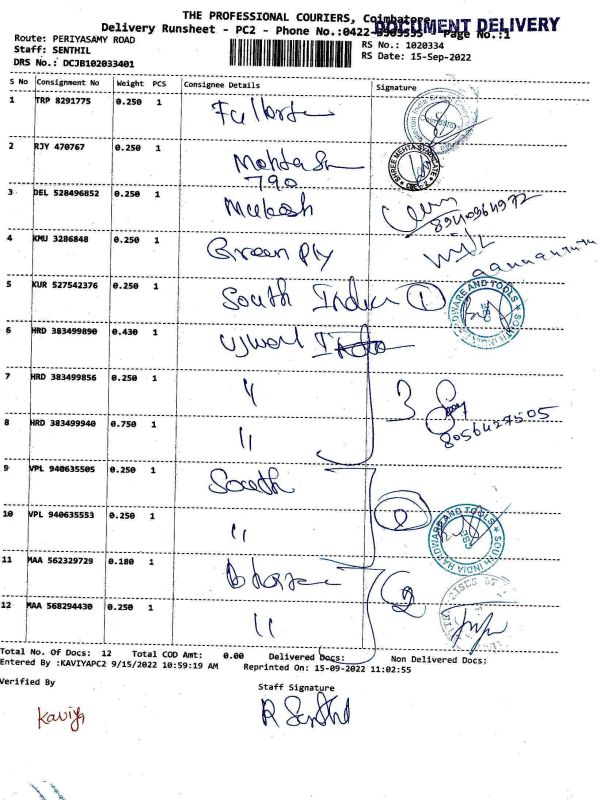 THE PROFESSIONAL COURIERS, Coimbatore
DOCUMENT DELIVERY
Delivery Runsheet - PC2 - Phone No.:0422- Page No.:1
Route: PERIYASAMY ROAD
RS No.: 1020334
Staff: SENTHIL
RS Date: 15-Sep-2022
DRS No.: DCJB102033401
S No Consignment No Weight PCS Consignee Details Signature
1 TRP 8291775 0.250 1
2 RJY 470767 0.250 1 Mehta
790
3 DEL 528496852 0.250 1 Mukesh
4 KMU 3286848 0.250 1 Green Ply
5 KUR 527542376 0.250 1 South India 1
SOUTH INDIA HARDWARE AND TOOLS
6 HRD 383499890 0.430 1
7 HRD 383499856 0.250 1 " 3
8056427505
8 HRD 383499940 0.750 1 "
9 VPL 940635505 0.250 1 South
2
10 VPL 940635553 0.250 1 "
SOUTH INDIA HARDWARE AND TOOLS
11 MAA 562329729 0.180 1
2
12 MAA 568294430 0.250 1 "
Total No. Of Docs: 12 Total COD Amt: 0.00 Delivered Docs: Non Delivered Docs:
Entered By :KAVIYAPC2 9/15/2022 10:59:19 AM Reprinted On: 15-09-2022 11:02:55
Verified By
Staff Signature
Kaviya
R Senthil